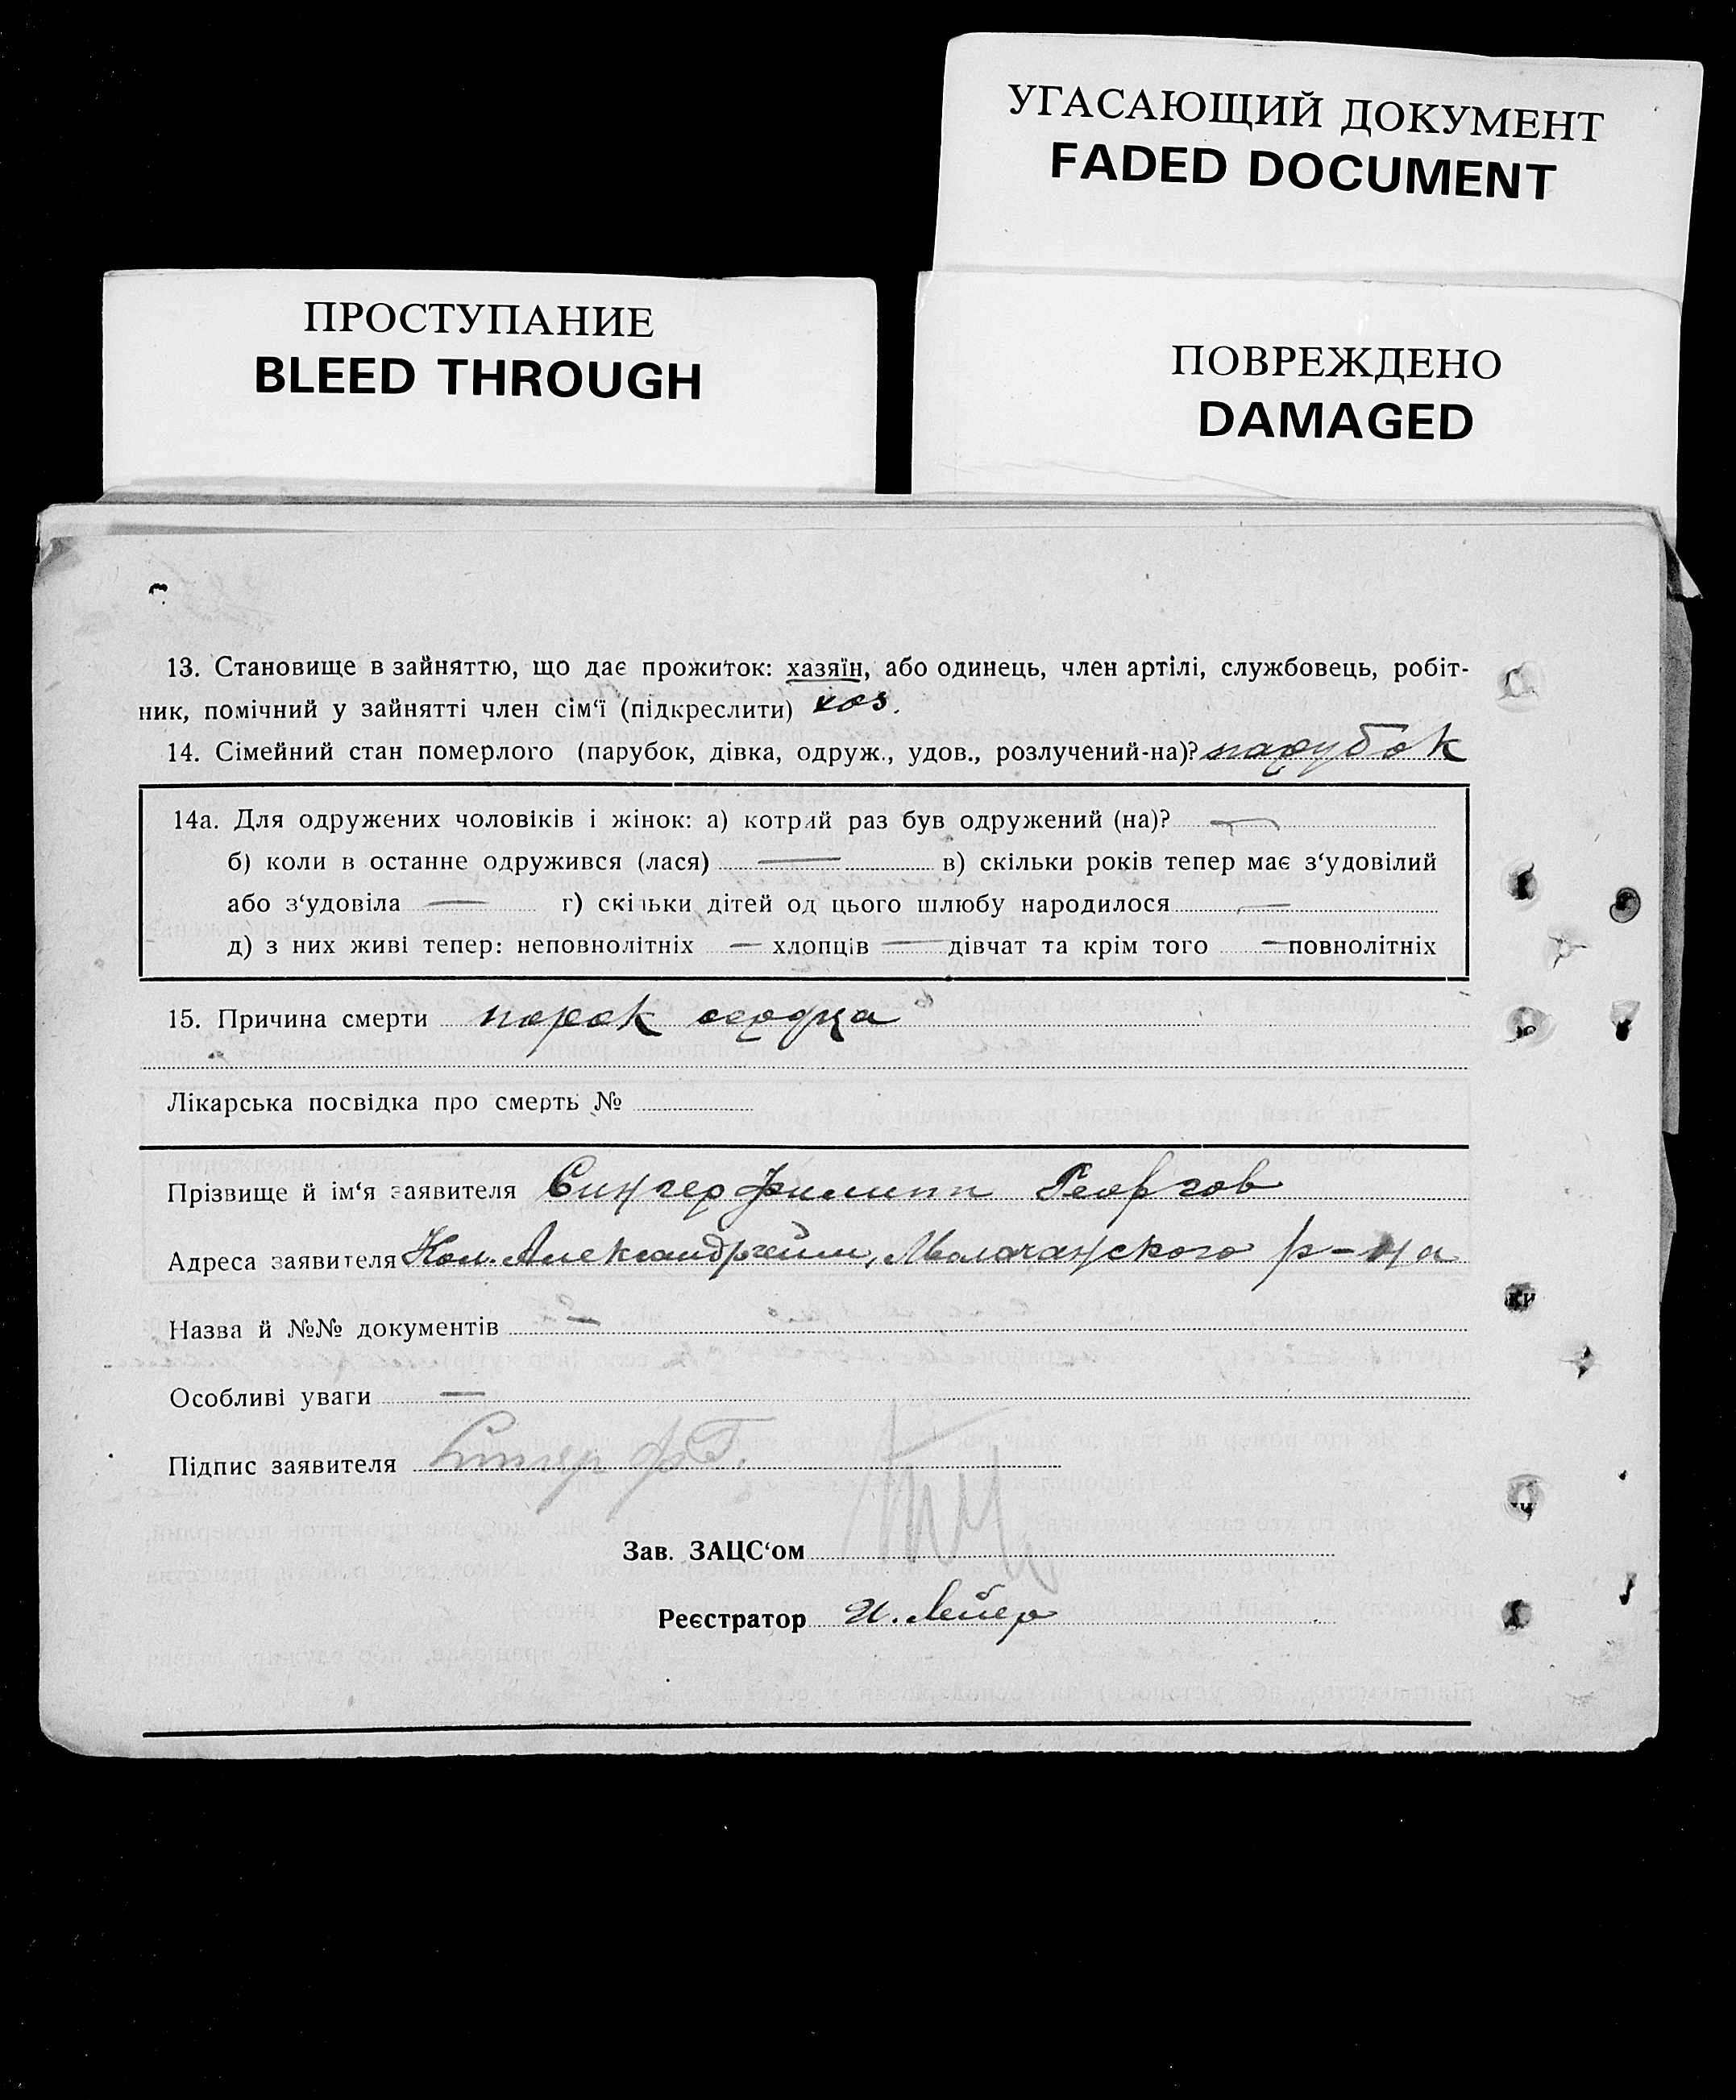 УГАСАЮЩИЙ ДОКУМЕНТ
FADED DOCUMENT
ПРОСТУПАНИЕ
BLEED THROUGH
ПОВРЕЖДЕНО
DAMAGED
13. Становище в зайняттю, що дає прожиток: хазяїн, або одинець, член артілі, службовець, робіт-
ник, помічний у зайнятті член сім‘ї (підкреслити) хоз.
14. Сімейний стан померлого (парубок, дівка, одруж., удов., розлучений-на)? парубок
14а. Для одружених чоловіків і жінок: а) котрий раз був одружений (на)? —
б) коли в останне одружився (лася) — в) скільки років тепер має з‘удовілий
або з‘удовіла — г) скільки дітей од цього шлюбу народилося —
д) з них живі тепер: неповнолітніх — хлопців — дівчат та крім того — повнолітніх
15. Причина смерти порок сердца
Лікарська посвідка про смерть №
Прізвище й ім‘я заявителя Сингер Филипп Георгов
Адреса заявителя Кол. Александргейм, Молочанского р-на
Назва й №№ документів —
Особливі уваги —
Підпис заявителя Сингер Ф Г.
Зав. ЗАЦС‘ом
Реєстратор И. Лейер